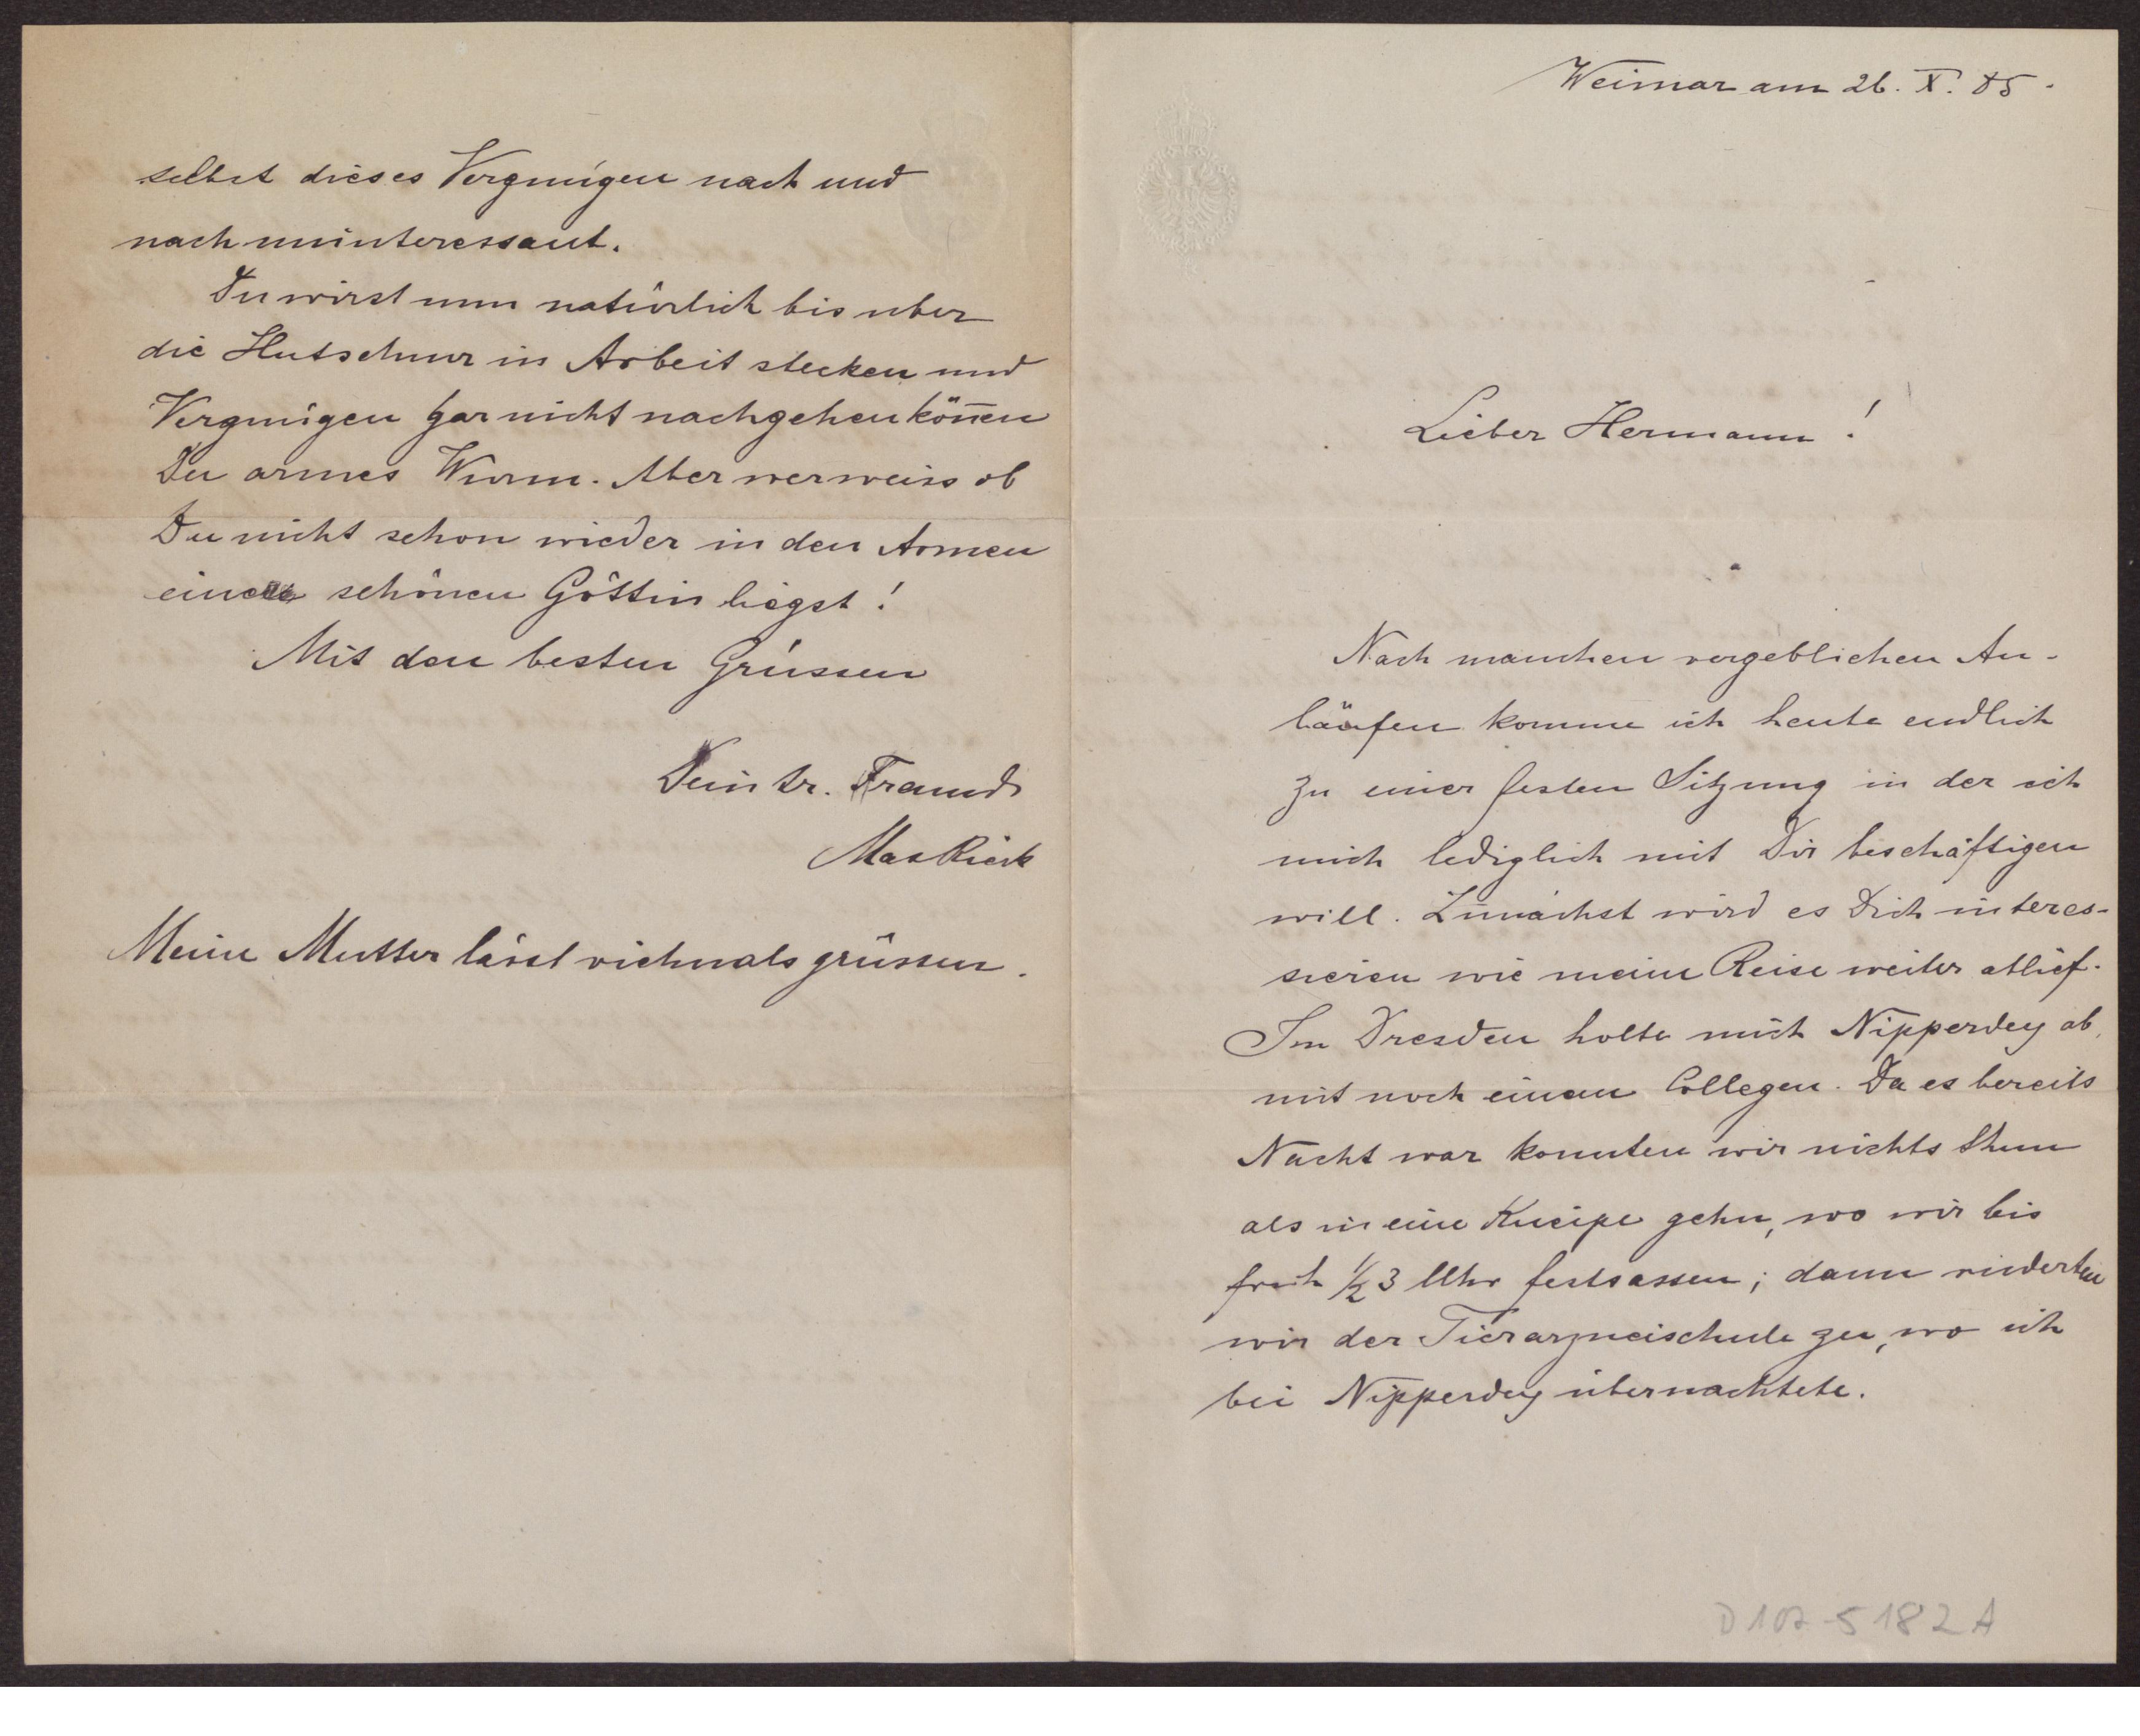 selbst dieses Vergnügen nach und
nach uninteressant.
Du wirst nun natürlich bis uber
die Hutschnur in Arbeit stecken und
Vergnügen gar nicht nachgehen kön̄en
Du armes Wurm. Aber wer weiss ob
Du nicht schon wieder in den Armen
einer schönen Göttin liegst!
Mit den besten Grüssen
Dein tr. Freund
Max
Meine Mutter lässt vielmals grüssen.
Weimar am 26. X. 85.
Lieber Hermann!
Nach manchen vergeblichen An-
läufen komme ich heute endlich
zu einer festen Sitzung in der ich
mich lediglich mit Dir beschäftigen
will. Zunächst wird es Dich interes-
sieren wie meine Reise weiter ablief.
In Dresden holte mich Nipperdey ab,
mit noch einem Collegen. Da es bereits
Nacht war konnten wir nichts thun
als in eine Kneipe gehn, wo wir bis
früh ½ 3 Uhr festsassen; dann ruderten
wir der Tierarzneischule zu, wo ich
bei Nipperdey übernachtete.
D 107-5182 A